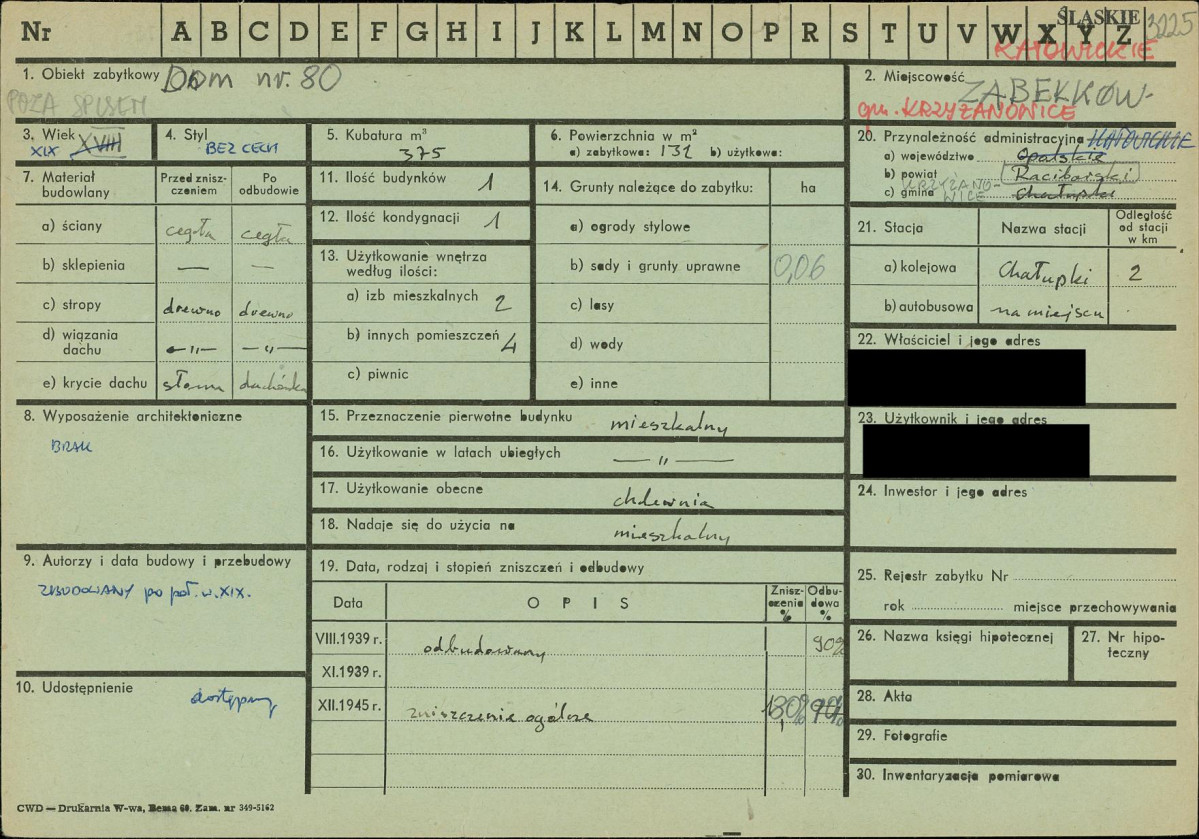 Nr A B C D E F G H I J K L M N O P R S T U V W X Y Z ŚLĄSKIE
KATOWICKIE
1. Obiekt zabytkowy Dom nr. 80
POZA SPISEM
2. Miejscowość ZABEŁKÓW
gm. KRZYŻANOWICE
3. Wiek XVIII
XIX
4. Styl
BEZ CECH
5. Kubatura m³
375
6. Powierzchnia w m²
a) zabytkowa: 132 b) użytkowa:
20. Przynależność administracyjna KATOWICKIE
a) województwo Opolskie
b) powiat Raciborski
c) gmina KRZYŻANOWICE Chałupki
7. Materiał budowlany
Przed zniszczeniem
Po odbudowie
a) ściany cegła cegła
b) sklepienia — —
c) stropy drewno drewno
d) wiązania dachu —"— —"—
e) krycie dachu słoma dachówka
11. Ilość budynków 1
12. Ilość kondygnacji 1
13. Użytkowanie wnętrza
według ilości:
a) izb mieszkalnych 2
b) innych pomieszczeń 4
c) piwnic
14. Grunty należące do zabytku: ha
a) ogrody stylowe
b) sady i grunty uprawne 0,06
c) lasy
d) wody
e) inne
21. Stacja
Nazwa stacji
Odległość od stacji w km
a) kolejowa Chałupki 2
b) autobusowa na miejscu
22. Właściciel i jego adres
23. Użytkownik i jego adres
8. Wyposażenie architektoniczne
BRAK
15. Przeznaczenie pierwotne budynku mieszkalny
16. Użytkowanie w latach ubiegłych —"—
17. Użytkowanie obecne chlewnia
18. Nadaje się do użycia na mieszkalny
24. Inwestor i jego adres
9. Autorzy i data budowy i przebudowy
ZBUDOWANY po poł. w. XIX.
10. Udostępnienie dostępny
19. Data, rodzaj i stopień zniszczeń i odbudowy
Data
OPIS
Zniszczenia %
Odbudowa %
VIII.1939 r. odbudowany 90%
XI.1939 r.
XII.1945 r. zniszczenie ogólne
25. Rejestr zabytku Nr
rok miejsce przechowywania
26. Nazwa księgi hipotecznej
27. Nr hipoteczny
28. Akta
29. Fotografie
30. Inwentaryzacja pomiarowa
CWD — Drukarnia W-wa, Bema 60. Zam. nr 349-5162